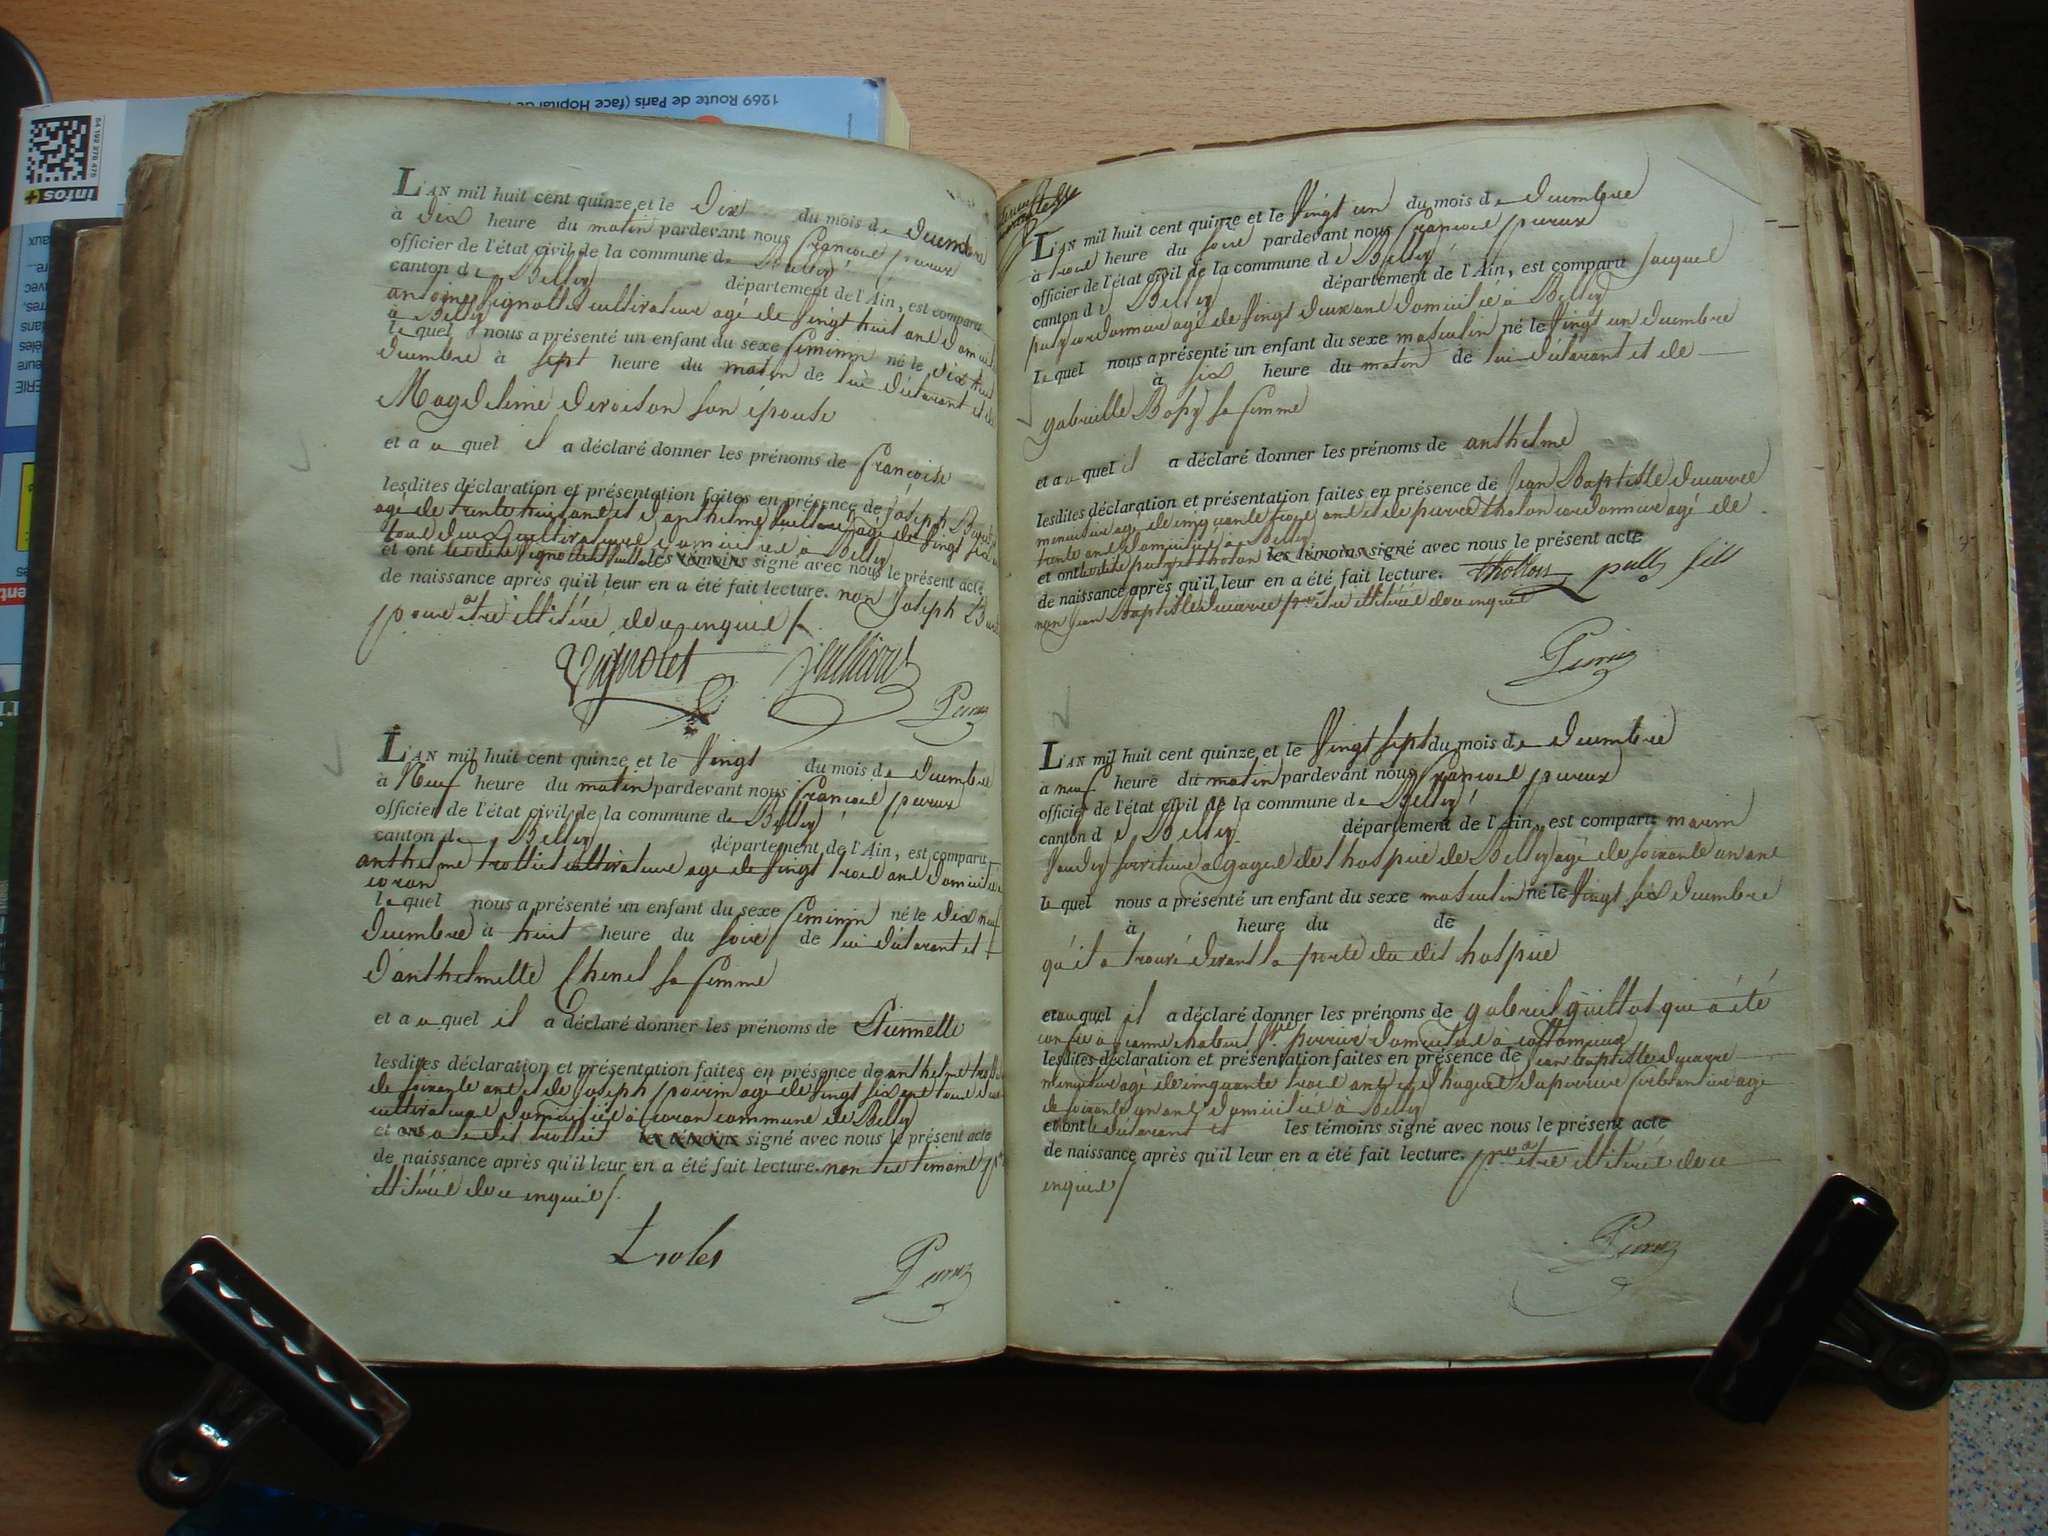 1269 Route de Paris (face Hopital de
infos+
L'AN mil huit cent quinze et le Dix du mois de Decembre
à Dix heure du matin pardevant nous françois peroux
officier de l'état civil de la commune de Belley
canton de Belley département de l'Ain, est comparu
antoine Vignollet cultivateur agé de Vingt huit ans Domicilié
à Belley
lequel nous a présenté un enfant du sexe feminin né le dix huit
Decembre à sept heure du matin de lui déclarant et de
Magdeleine son épouse
et auquel il a déclaré donner les prénoms de françoise
lesdites déclaration et présentation faites en présence de Joseph
agé de trente huit ans et d'anthelme agé de Vingt six
tous deux cultivateurs domicilié à Belley
et ont les témoins signé avec nous le présent acte
de naissance après qu'il leur en a été fait lecture. non Joseph
pour être illitéré de ce enquis /.
Vignolet
Peroux
L'AN mil huit cent quinze et le Vingt du mois de Decembre
à Neuf heure du matin pardevant nous françois peroux
officier de l'état civil de la commune de Belley
canton de Belley département de l'Ain, est comparu
anthelme trollie cultivateur agé de Vingt trois ans Domicilié
coron
lequel nous a présenté un enfant du sexe feminin né le Dix neuf
Decembre à huit heure du soir de lui déclarant et
D'anthelmette Chenel sa femme
et auquel il a déclaré donner les prénoms de Piernette
lesdites déclaration et présentation faites en présence de anthelme
de soixante ans et de Joseph agé de Vingt six ans tous deux
cultivateurs domicilié à Coron commune de Belley
et ont ledit trollie les témoins signé avec nous le présent acte
de naissance après qu'il leur en a été fait lecture. non les temoins
illitéré de ce enquis /.
troles
Peroux
L'AN mil huit cent quinze et le Vingt un du mois de Decembre
à trois heure du soir pardevant nous françois peroux
officier de l'état civil de la commune de Belley
canton de Belley département de l'Ain, est comparu Jacques
cordonnier agé de Vingt deux ans domicilié à Belley
lequel nous a présenté un enfant du sexe masculin né le Vingt un Decembre
à six heure du matin de lui déclarant et de
gabrielle Bossy sa femme
et auquel il a déclaré donner les prénoms de anthelme
lesdites déclaration et présentation faites en présence de Jean Baptiste ducarre
agé de cinquante trois ans et de pierre tholon cordonnier agé de
trente ans domicilié à Belley
et ont les témoins signé avec nous le présent acte
de naissance après qu'il leur en a été fait lecture. Thollon fils
non Jean Baptiste ducarre pr être illitéré de ce enquis
Peroux
L'AN mil huit cent quinze et le Vingt sept du mois de Decembre
à neuf heure du matin pardevant nous françois peroux
officier de l'état civil de la commune de Belley
canton de Belley département de l'Ain, est comparu marin
de l'hospice de Belley agé de soixante un ans
lequel nous a présenté un enfant du sexe masculin né le Vingt six Decembre
à heure du de
qu'il a trouvé devant la porte du dit hospice
et auquel il a déclaré donner les prénoms de gabriel guillot qui a été
confié à jeanne domicilié à
lesdites déclaration et présentation faites en présence de jean baptiste ducarre
agé de cinquante trois ans et de hugues agé
de soixante un ans domicilié à Belley
et ont le déclarant et les témoins signé avec nous le présent acte
de naissance après qu'il leur en a été fait lecture. pour être illitéré de ce
enquis /
Peroux